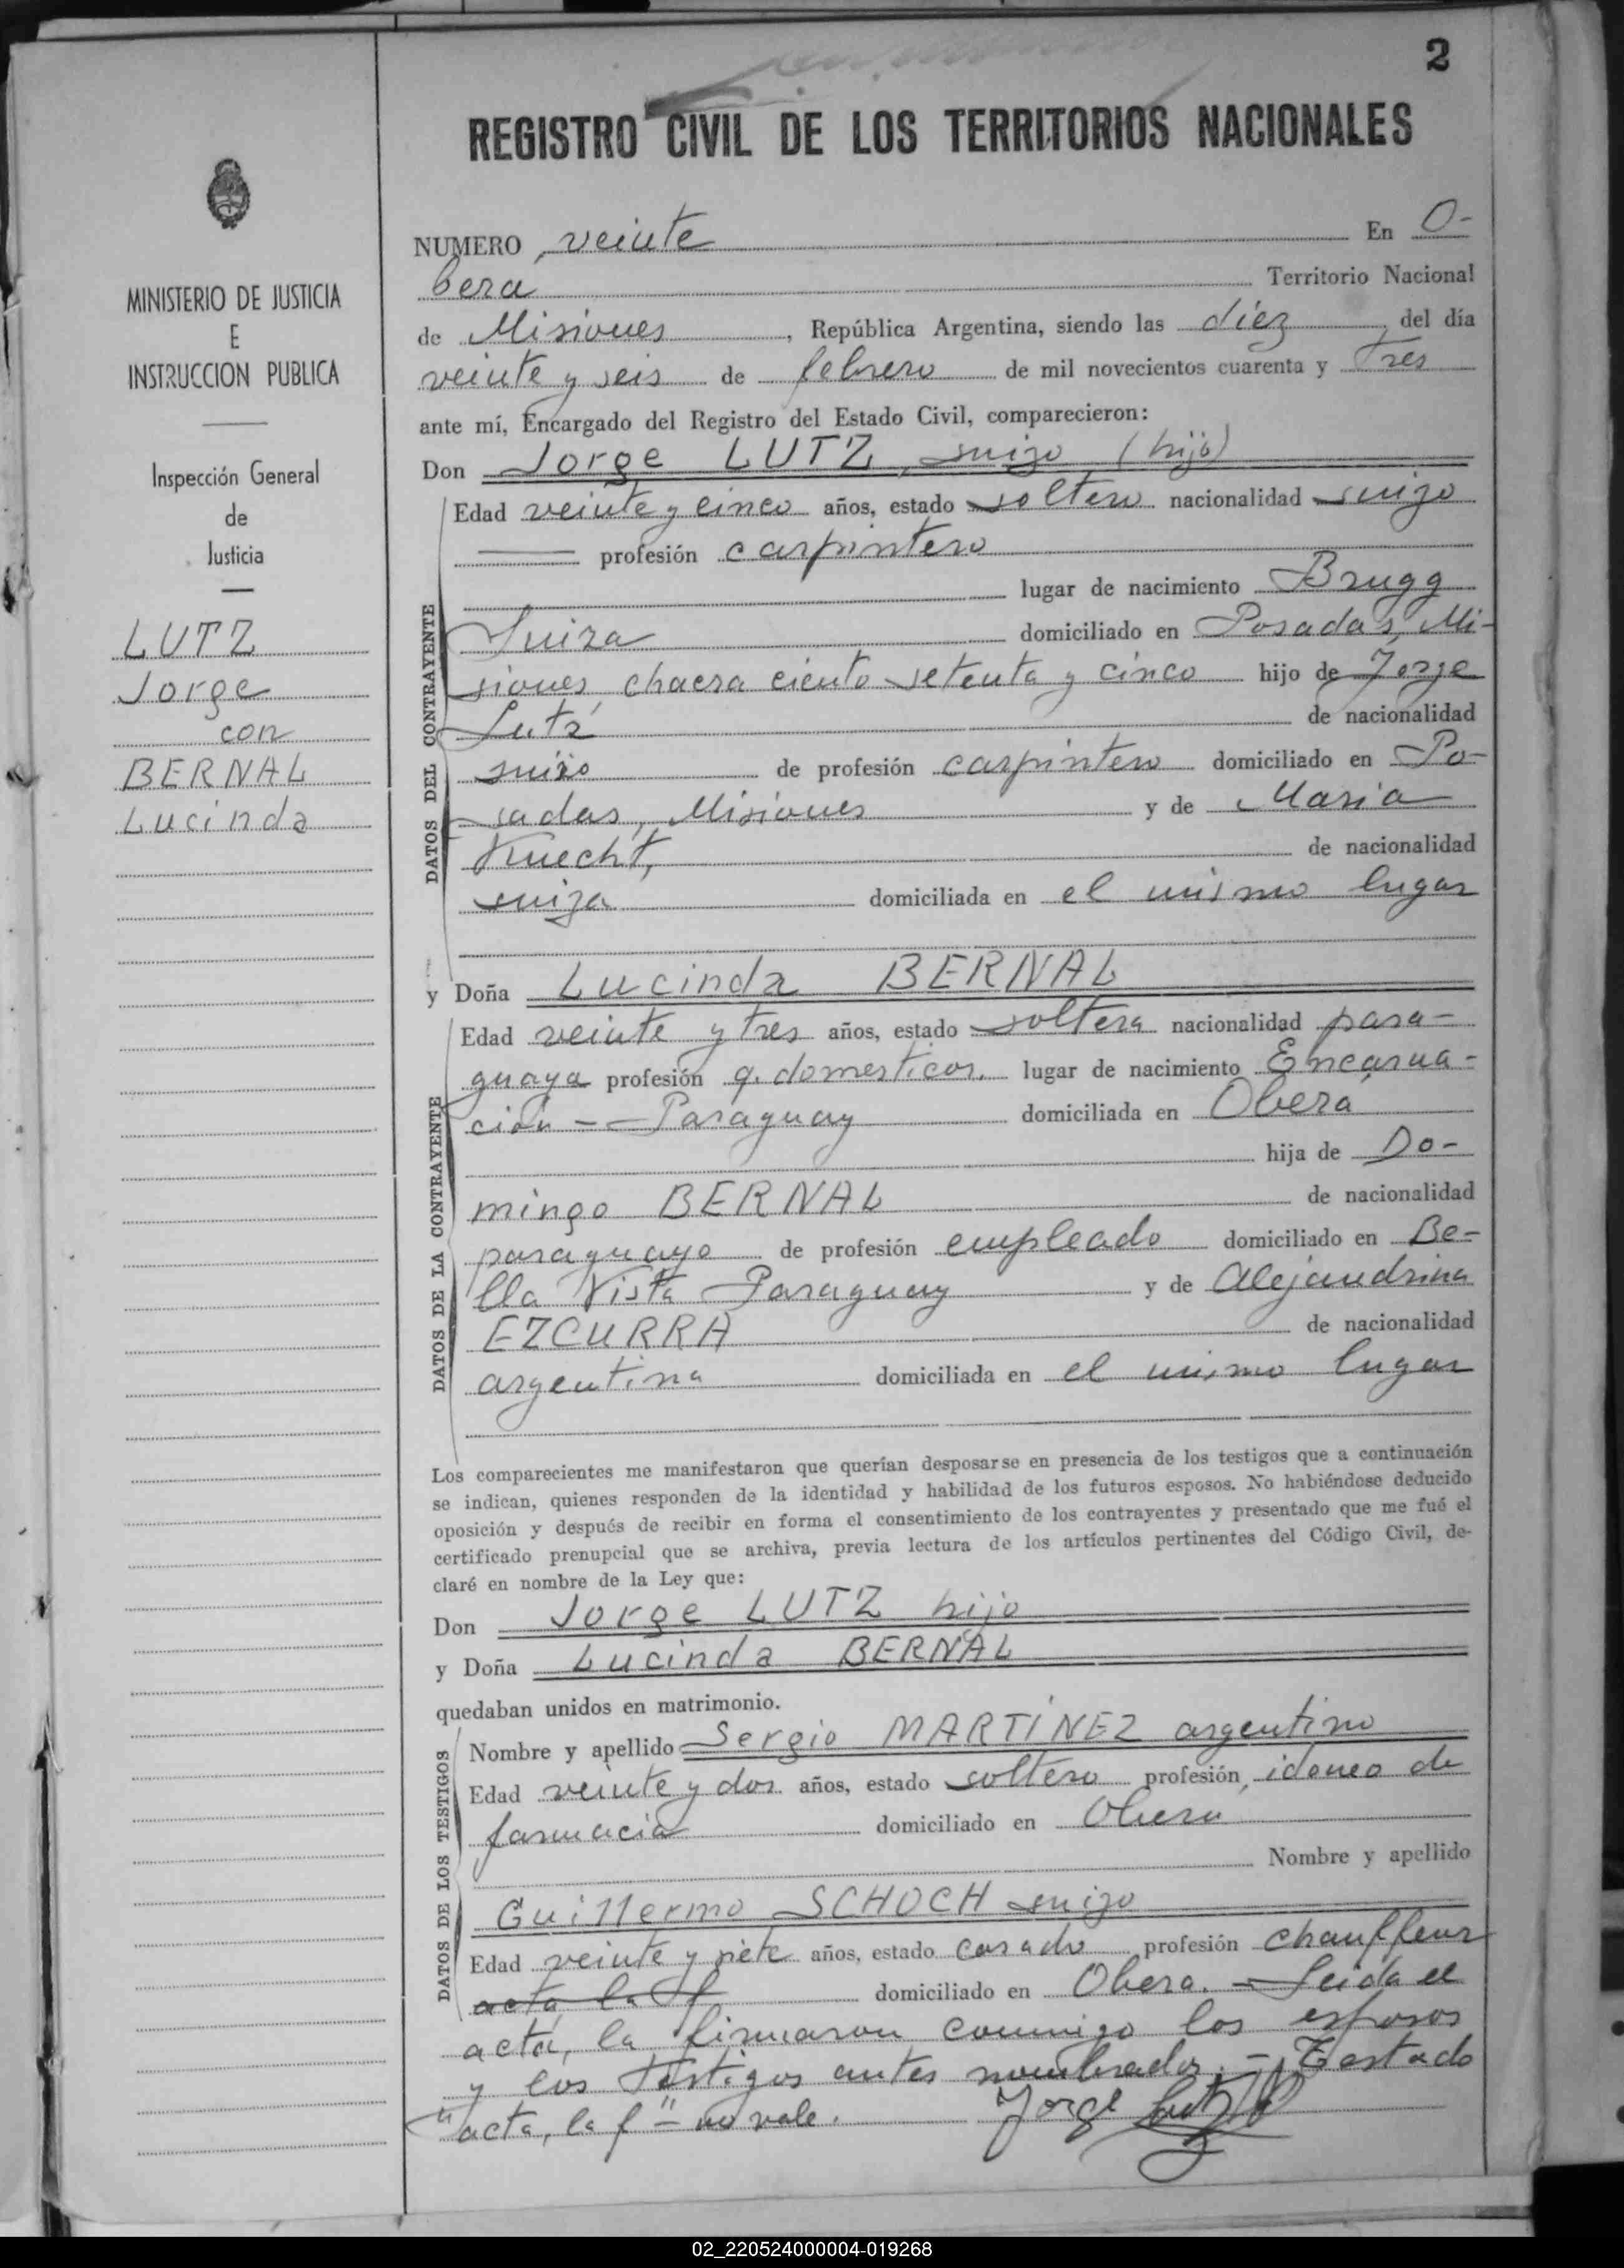 2
REGISTRO CIVIL DE LOS TERRITORIOS NACIONALES
MINISTERIO DE JUSTICIA
E
INSTRUCCION PUBLICA
Inspección General
de
Justicia
LUTZ
Jorge
con
BERNAL
Lucinda
NUMERO veinte En O-
bera Territorio Nacional
de Misiones, República Argentina, siendo las diez, del día
veinte y seis de febrero de mil novecientos cuarenta y Tres
ante mí, Encargado del Registro del Estado Civil, comparecieron:
Don Jorge LUTZ, suizo (hijo)
DATOS DEL CONTRAYENTE
Edad veinte y cinco años, estado soltero nacionalidad suizo
profesión carpintero
lugar de nacimiento Brugg
Suiza domiciliado en Posadas, Mi-
siones, chacra ciento setenta y cinco hijo de Jorge
Lutz de nacionalidad
suizo de profesión carpintero domiciliado en Po-
sadas, Misiones y de Maria
Knecht, de nacionalidad
suiza domiciliada en el mismo lugar
y Doña Lucinda BERNAL
DATOS DE LA CONTRAYENTE
Edad veinte y tres años, estado soltera nacionalidad para-
guaya profesión q. domesticos. lugar de nacimiento Encarna-
ción -- Paraguay domiciliada en Obera
hija de Do-
mingo BERNAL de nacionalidad
paraguayo de profesión empleado domiciliado en Be-
lla Vista Paraguay y de Alejandrina
EZCURRA de nacionalidad
argentina domiciliada en el mismo lugar
Los comparecientes me manifestaron que querían desposarse en presencia de los testigos que a continuación
se indican, quienes responden de la identidad y habilidad de los futuros esposos. No habiéndose deducido
oposición y después de recibir en forma el consentimiento de los contrayentes y presentado que me fué el
certificado prenupcial que se archiva, previa lectura de los artículos pertinentes del Código Civil, de-
claré en nombre de la Ley que:
Don Jorge LUTZ hijo
y Doña Lucinda BERNAL
quedaban unidos en matrimonio.
DATOS DE LOS TESTIGOS
Nombre y apellido Sergio MARTÍNEZ argentino
Edad veinte y dos años, estado soltero profesión idoneo de
farmacia domiciliado en Obera
Nombre y apellido
Guillermo SCHOCH suizo
Edad veinte y siete años, estado casado profesión chauffeur
acta la f domiciliado en Obera. - Leida el
acta, la firmaron conmigo los esposos
y los testigos antes nombrados. - Testado
"acta, la f" - no vale. Jorge Lutz
02_220524000004-019268